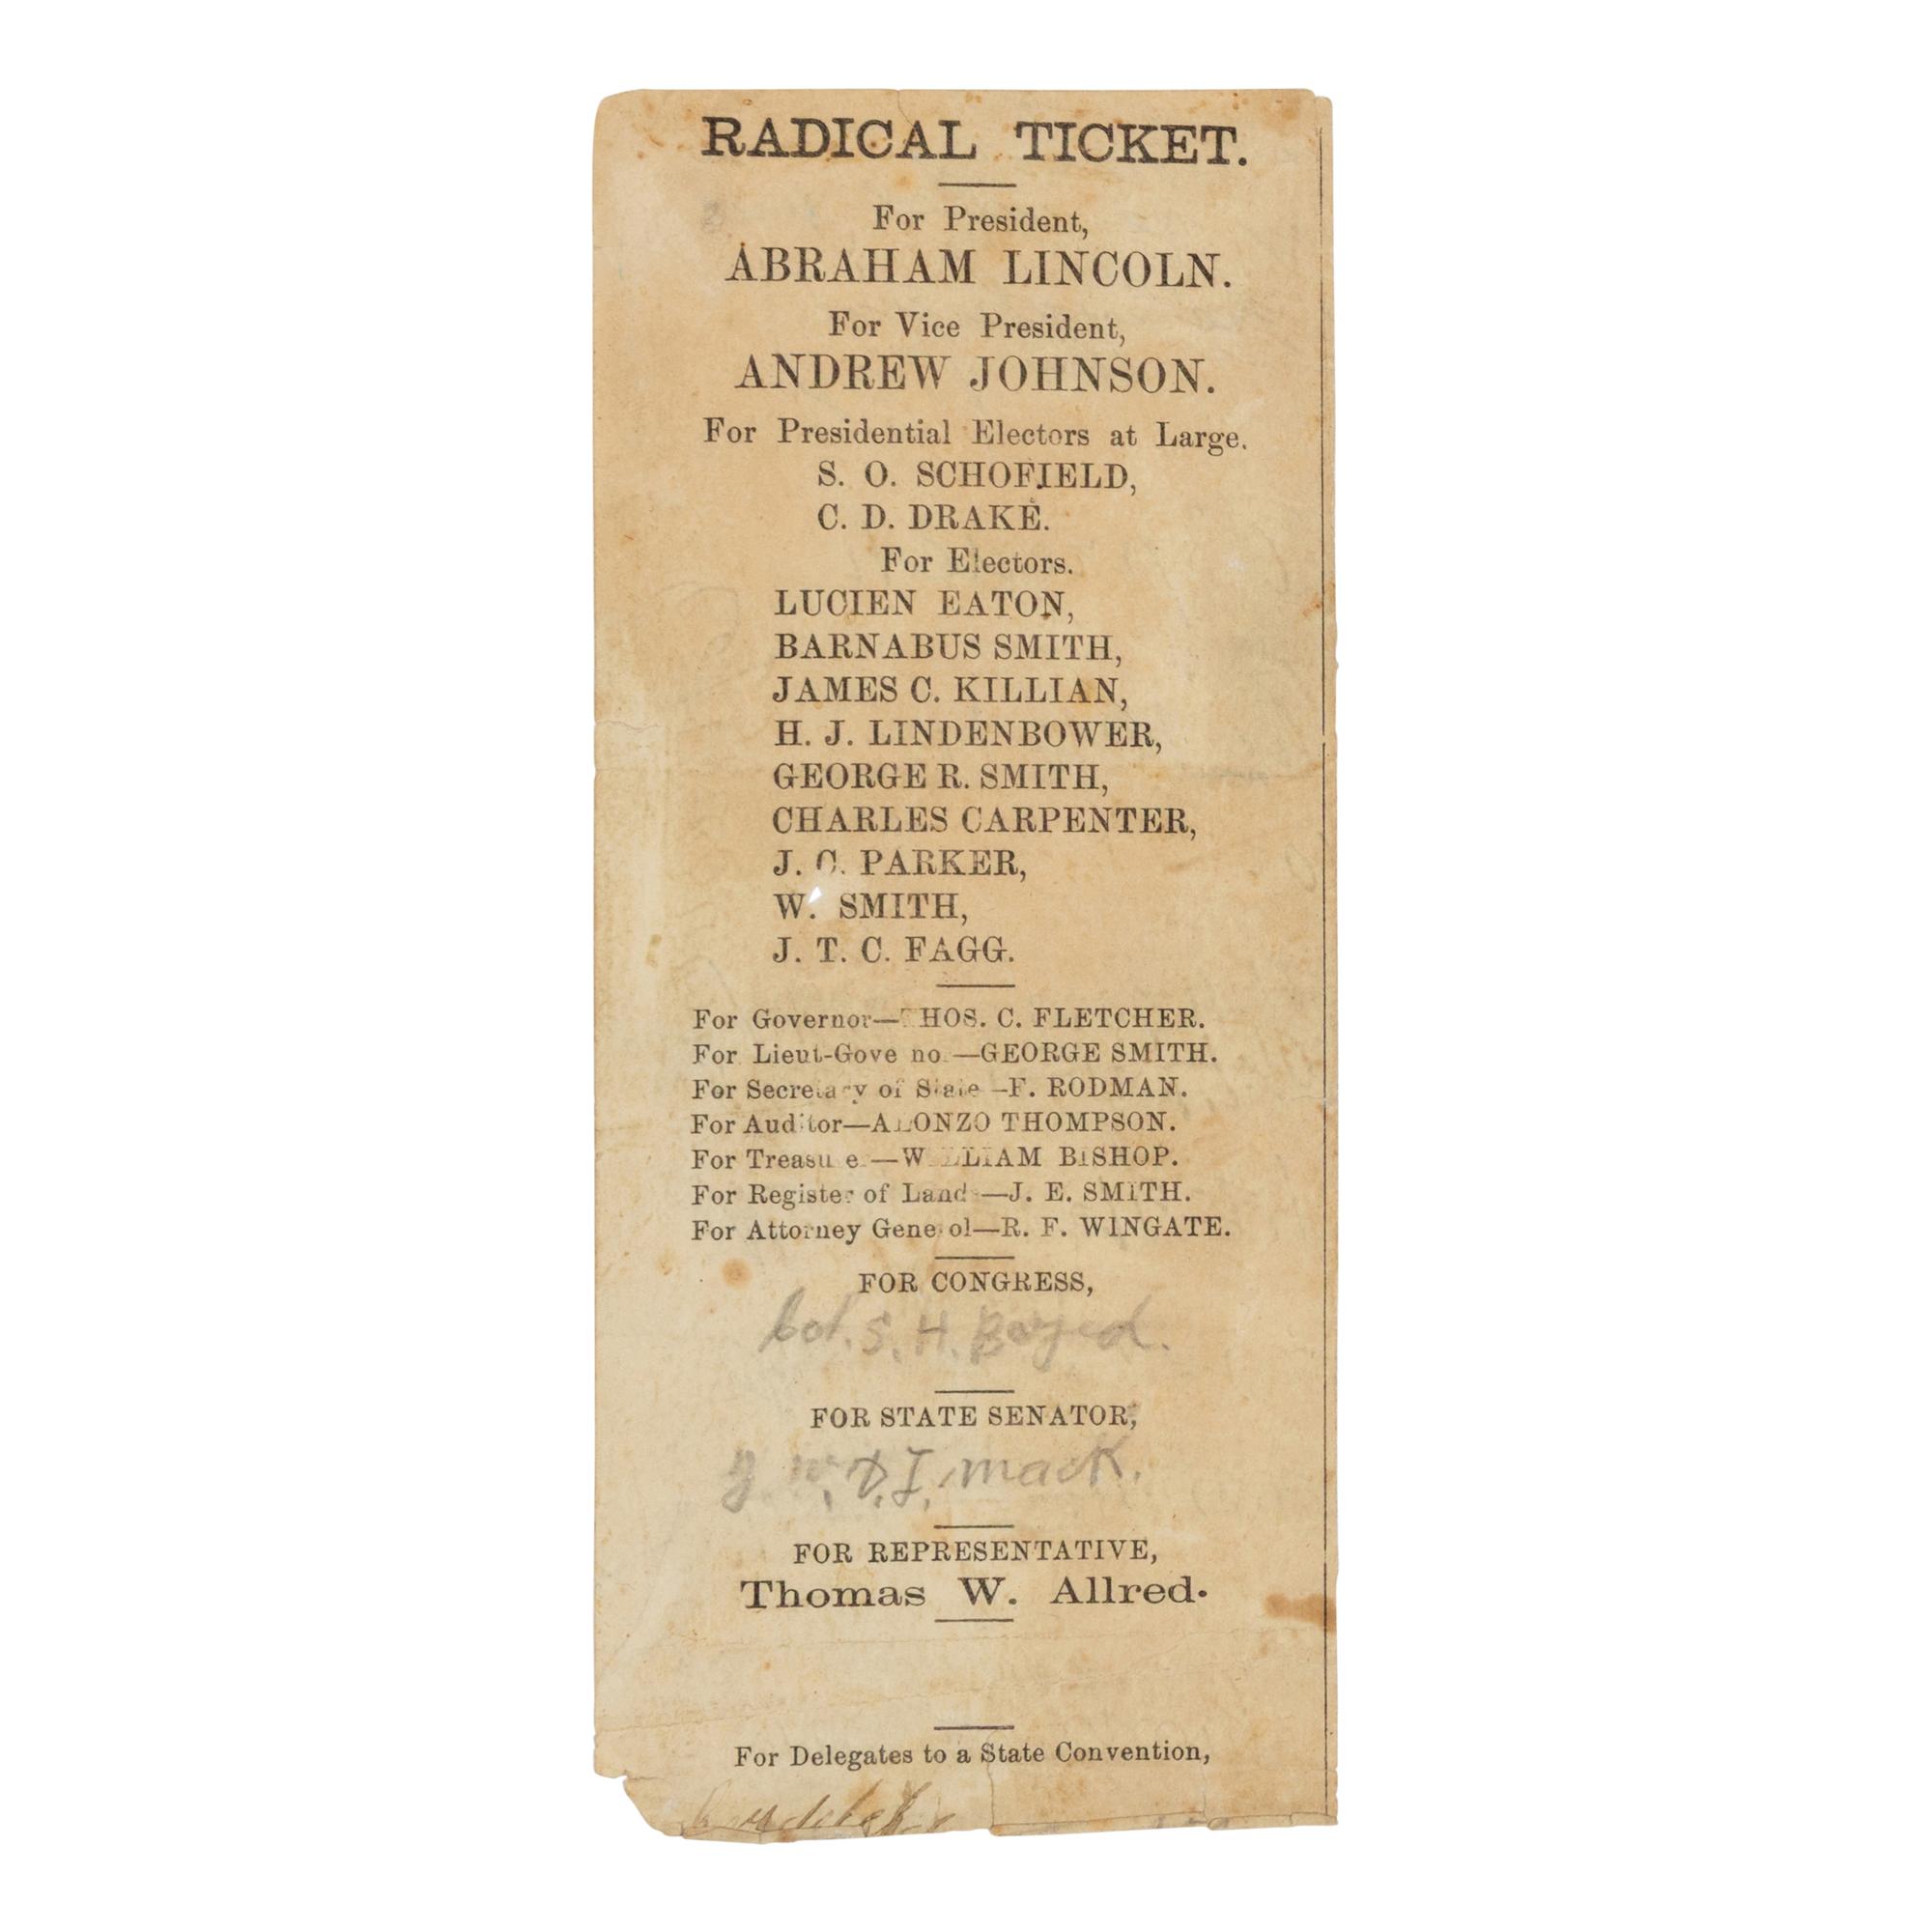 RADICAL TICKET.
For President,
ABRAHAM LINCOLN.
For Vice President,
ANDREW JOHNSON.
For Presidential Electors at Large.
S. O. SCHOFIELD,
C. D. DRAKE.
For Electors.
LUCIEN EATON,
BARNABUS SMITH,
JAMES C. KILLIAN,
H. J. LINDENBOWER,
GEORGE R. SMITH,
CHARLES CARPENTER,
J. C. PARKER,
W. SMITH,
J. T. C. FAGG.
For Governor—THOS. C. FLETCHER.
For Lieut-Governor—GEORGE SMITH.
For Secretary of State—F. RODMAN.
For Auditor—ALONZO THOMPSON.
For Treasurer—WILLIAM BISHOP.
For Register of Lands—J. E. SMITH.
For Attorney Generol—R. F. WINGATE.
FOR CONGRESS,
Col. S. H. Boyed.
FOR STATE SENATOR,
mack.
FOR REPRESENTATIVE,
Thomas W. Allred.
For Delegates to a State Convention,